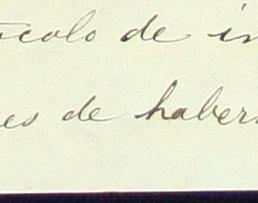 colo de in
es de haber